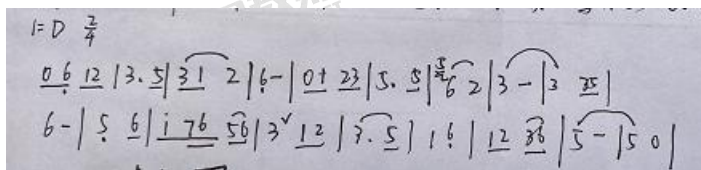 1=D 2/4
0 6̣ 1 2 | 3. 5 | 3 1 2 | 6̣ - | 0 1 2 3 | 5. 5 | 6 2 | 3 - | 3 35 |
6 - | 5̣ 6 | i 76 56 | 3 ˅ 1 2 | 3. 5 | 1 6̣ | 12 36 | 5 - | 5 0 |